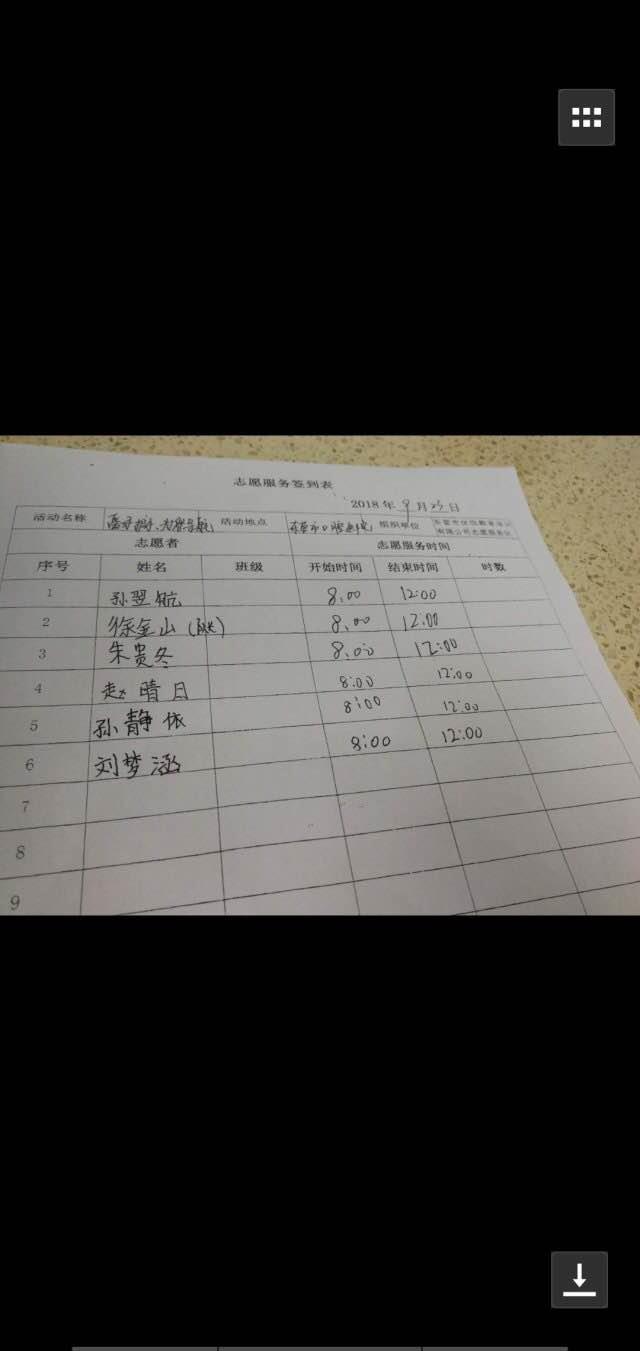 志愿服务签到表
2018 年 9 月 23 日
活动名称 活动地点 东营市口腔医院 组织单位
志愿者 志愿服务时间
序号 姓名 班级 开始时间 结束时间 时数
1 孙翌航 8:00 12:00
2 徐金山 8:00 12:00
3 朱贵冬 8:00 12:00
4 赵晴日 8:00 12:00
5 孙静依 8:00 12:00
6 刘梦涵 8:00 12:00
7
8
9